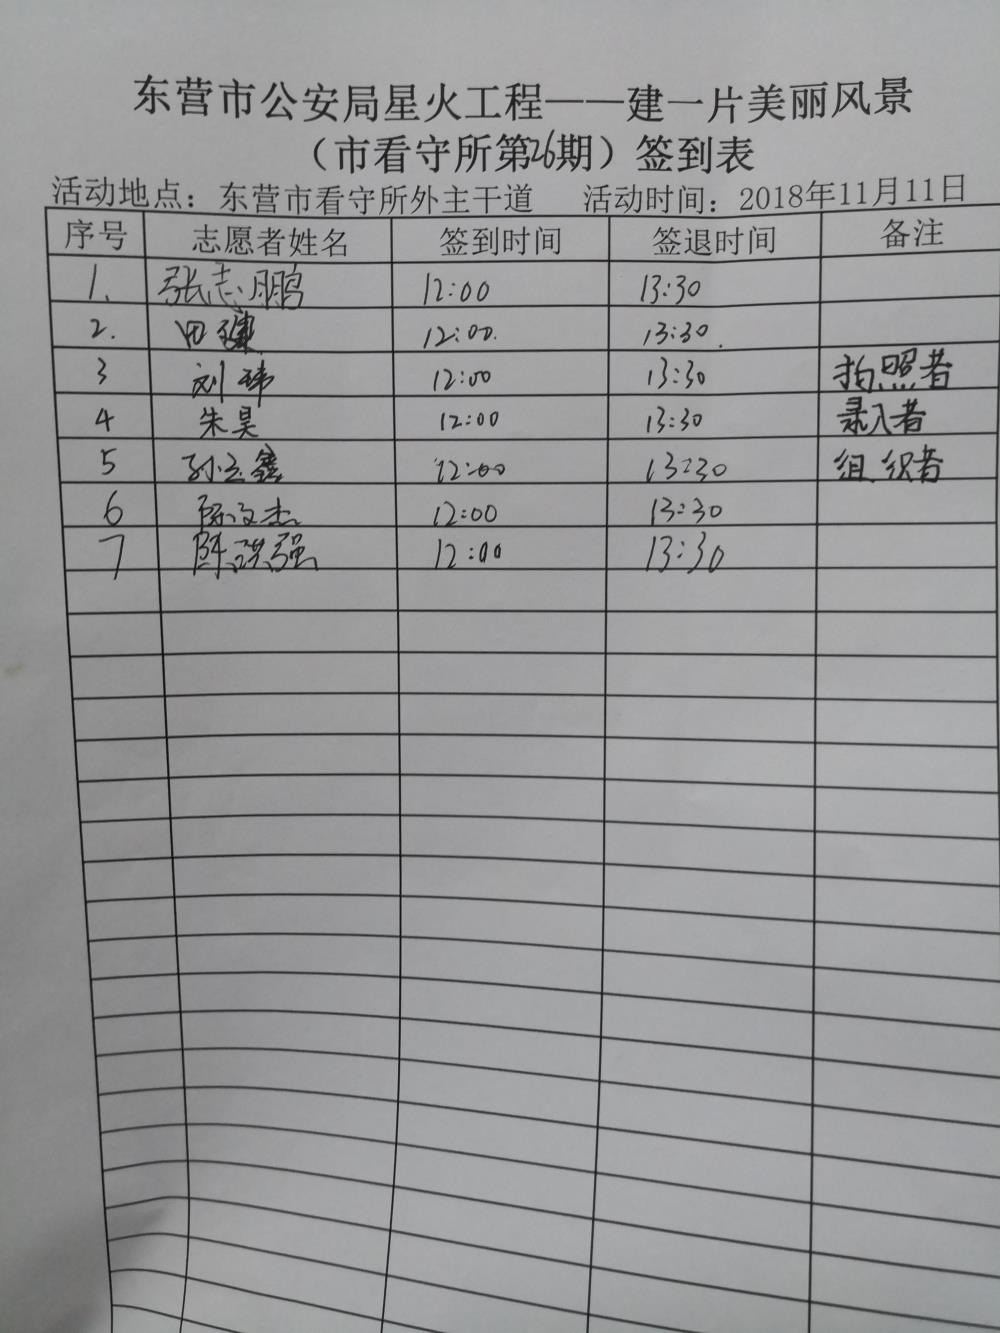 东营市公安局星火工程——建一片美丽风景
（市看守所第26期）签到表
活动地点：东营市看守所外主干道 活动时间：2018年11月11日
序号 志愿者姓名 签到时间 签退时间 备注
1. 张志鹏 12:00 13:30
2. 田 12:00. 13:30.
3 刘玮 12:00 13:30 拍照者
4 朱昊 12:00 13:30 录入者
5 孙立鑫 12:00 13:30 组织者
6 陈文杰 12:00 13:30
7 陈洪强 12:00 13:30